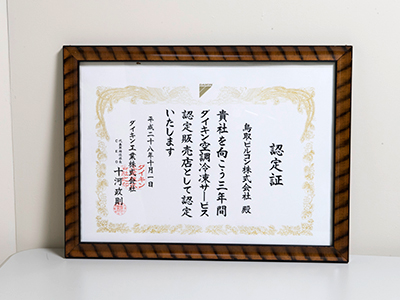 認定証
鳥取ビルコン株式会社 殿
貴社を向こう三年間
ダイキン空調冷凍サービス
認定販売店として認定
いたします
平成二十八年十月一日
ダイキン工業株式会社
十河政則